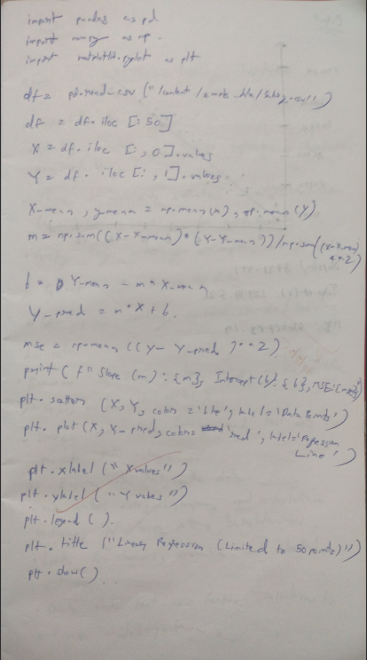 import pandas as pd
import numpy as np.
import matplotlib.pyplot as plt
df = pd.read_csv ("
df = df.iloc [: 50]
X = df.iloc [: , 0].values
Y = df. iloc [: , 1].values
X_mean, y_mean = np.mean(x), np.mean (y)
m = np.sum((X-X_mean)*(Y-Y_mean))/np.sum((x-x_mean)
**2)
b = Y_mean - m * X_mean
Y_pred = m * X + b.
mse = np.mean ((y - Y_pred)**2)
print( f" Slope (m): {m}, Intercept (b): {b}, MSE:{mse}"
plt. scatter (X, Y, color = 'blue', label = 'Data Points')
plt. plot (X, Y_pred, color= 'red', label='Regression
Line')
plt. xlabel (" X values")
plt. ylabel (" Y values")
plt. legend ( ).
plt. title ("Linear Regression (Limited to 50 points)")
plt. show( )